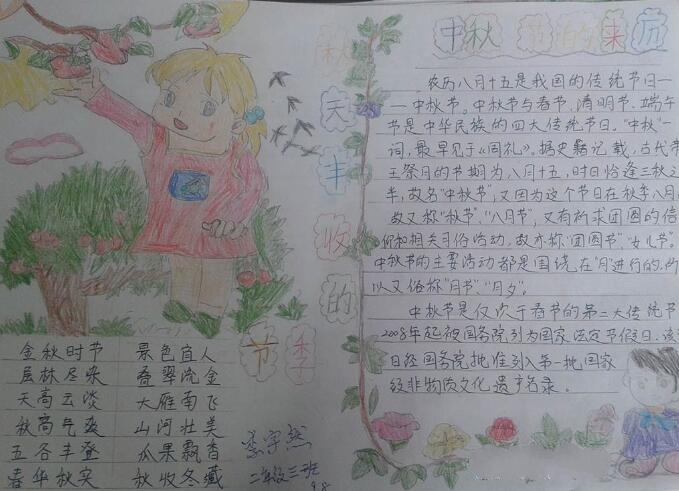 秋天丰收的季节
金秋时节 景色宜人
层林尽染 叠翠流金
天高云淡 大雁南飞
秋高气爽 山河壮美
五谷丰登 瓜果飘香
春华秋实 秋收冬藏
李宇然
二年级三班
9.8
中秋节的来历
农历八月十五是我国的传统节日一
一中秋节。中秋节与春节、清明节、端午
节是中华民族的四大传统节日。"中秋"一
词,最早见于《周礼》。据史籍记载,古代帝
王祭月的节期为八月十五,时日恰逢三秋之
半,故名"中秋节",又因为这个节日在秋季八月
故又称"秋节""八月节",又有祈求团圆的信
仰和相关习俗活动,故亦称"团圆节""女儿节"。
中秋节的主要活动都是围绕在"月"进行的,所
以又俗称"月节""月夕"。
中秋节是仅次于春节的第二大传统节
2008年起被国务院列为国家法定节假日。该
日经国务院批准列入第一批国家
级非物质文化遗产名录。